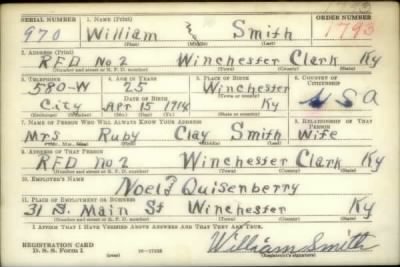 SERIAL NUMBER 1. NAME (Print) ORDER NUMBER
970 William Smith 1793
(First) (Middle) (Last)
2. ADDRESS (Print)
RFD No 2 Winchester Clark Ky
(Number and street or R. F. D. number) (Town) (County) (State)
3. TELEPHONE 4. AGE IN YEARS 5. PLACE OF BIRTH 6. COUNTRY OF CITIZENSHIP
580-W 25 Winchester U S A
DATE OF BIRTH (Town or county)
City Apr 15 1914 Ky
(Exchange) (Number) (Mo.) (Day) (Yr.) (State or country)
7. NAME OF PERSON WHO WILL ALWAYS KNOW YOUR ADDRESS 8. RELATIONSHIP OF THAT PERSON
Mrs Ruby Clay Smith Wife
(Mr., Mrs., Miss) (First) (Middle) (Last)
9. ADDRESS OF THAT PERSON
RFD no 2 Winchester Clark Ky
(Number and street or R. F. D. number) (Town) (County) (State)
10. EMPLOYER'S NAME
Quisenberry
11. PLACE OF EMPLOYMENT OR BUSINESS
31 S. Main St Winchester Ky
(Number and street or R. F. D. number) (Town) (County) (State)
I AFFIRM THAT I HAVE VERIFIED ABOVE ANSWERS AND THAT THEY ARE TRUE.
REGISTRATION CARD
D. S. S. Form 1 William Smith
(Registrant's signature)